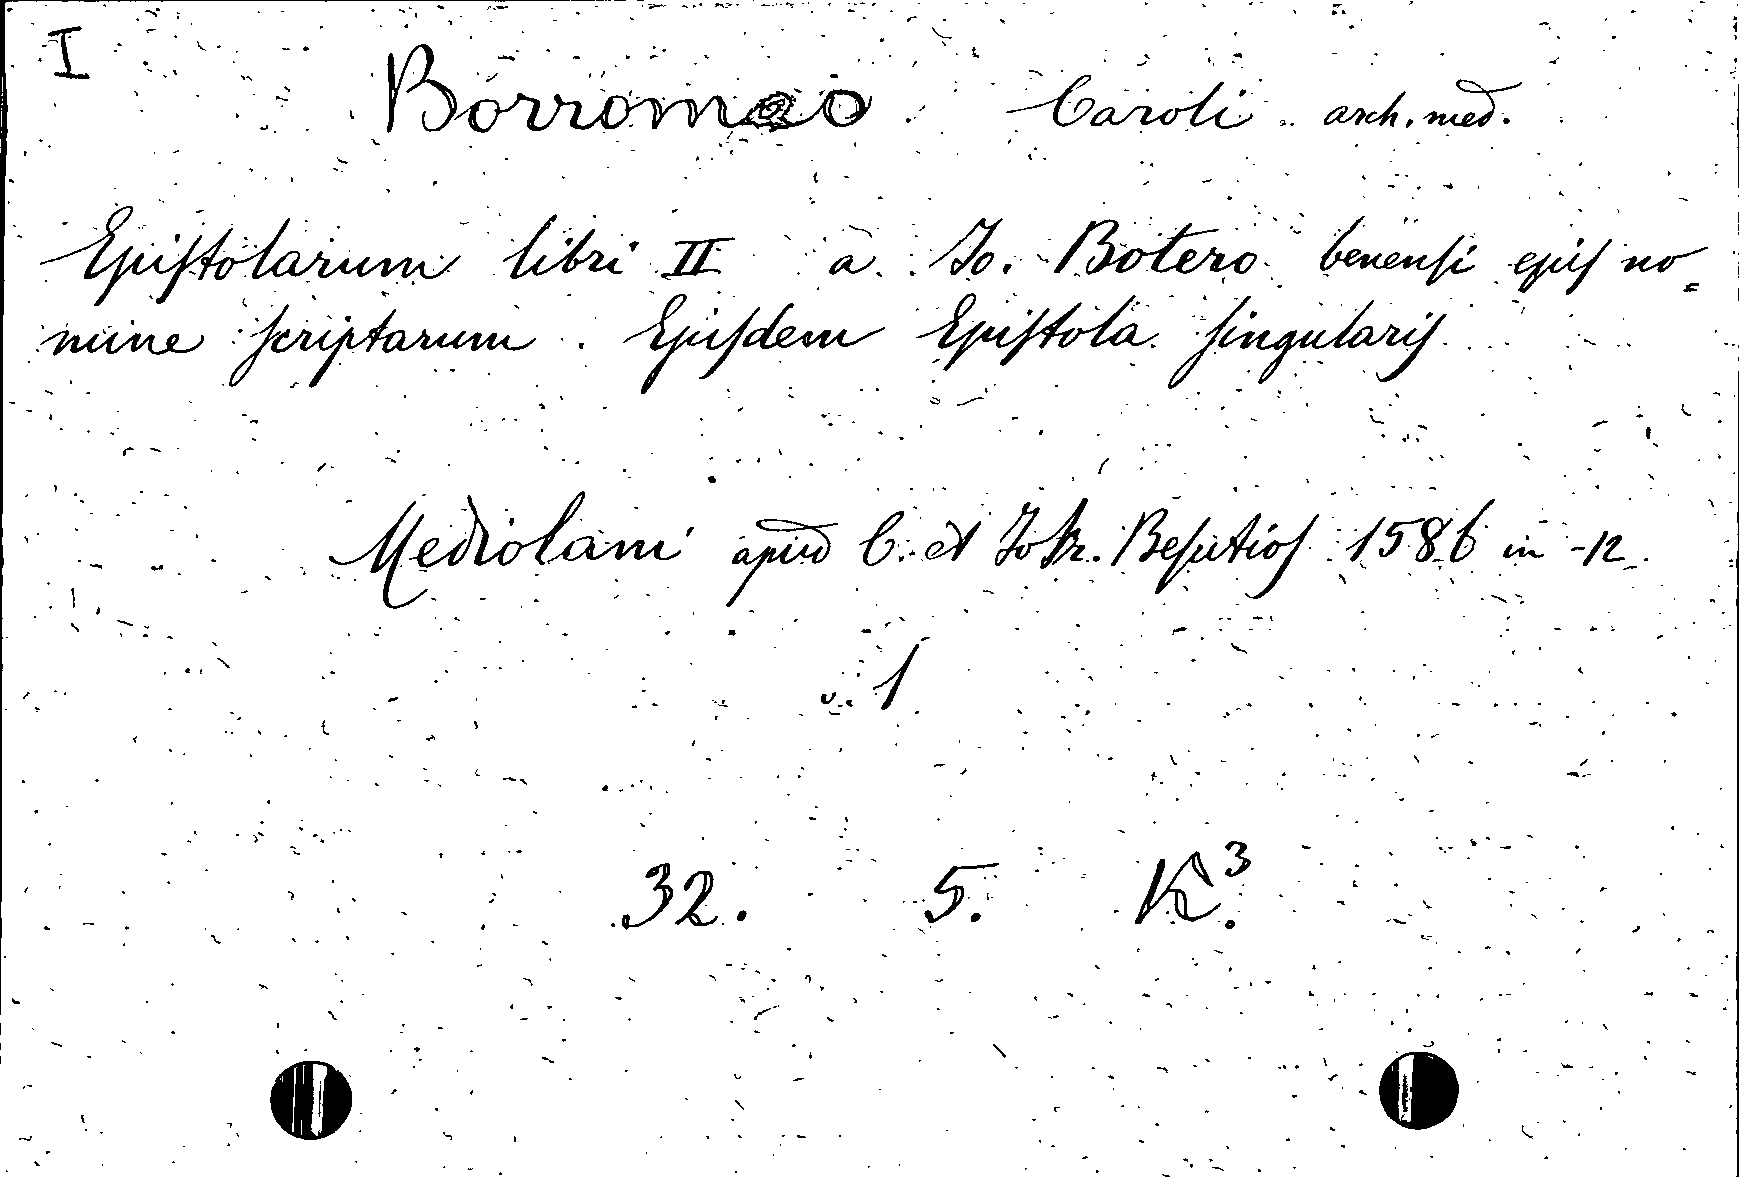 I
Borromeo Caroli arch. med.
Epiſtolarum libri II a Jo. Botero benenſi ejuſ no=
mine ſcriptarum. Ejuſdem Epiſtola ſingulariſ
Mediolani apud C. et Jo Fr. Beſutioſ 1586 in -12
v. 1
32. 5. K.3